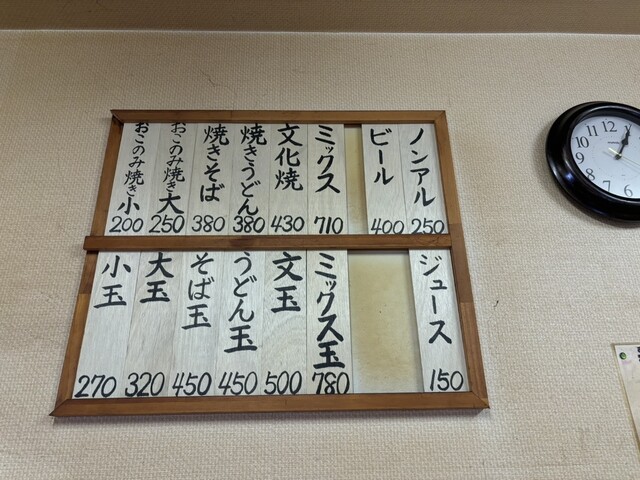 ノンアル 250
ビール 400
ミックス 710
文化焼 430
焼きうどん 380
焼きそば 380
おこのみ焼き大 250
おこのみ焼き小 200
ジュース 150
ミックス玉 780
文玉 500
うどん玉 450
そば玉 450
大玉 320
小玉 270
10 11 12 1 2 3 4 5 6 7 8 9